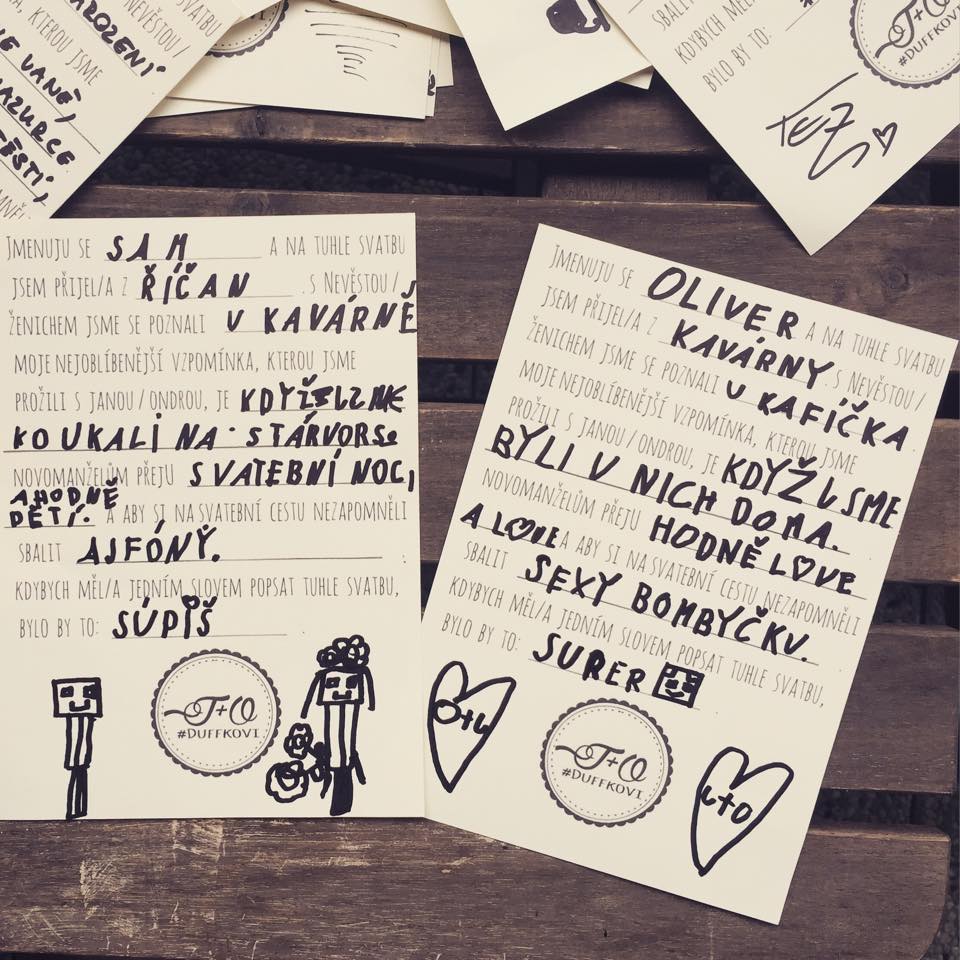 NAROZENÍ
, KTEROU JSME
LANĚ,
NEVĚSTOU/
#DUFFKOVI
SBALIT
KDYBYCH MĚL
BYLO BY TO:
J+O
#DUFFKOVI
JMENUJU SE SAM A NA TUHLE SVATBU
JSEM PŘIJEL/A Z ŘÍČAN . S NEVĚSTOU/
ŽENICHEM JSME SE POZNALI V KAVÁRNĚ
MOJE NEJOBLÍBENĚJŠÍ VZPOMÍNKA, KTEROU JSME
PROŽILI S JANOU/ONDROU, JE KDYŽ
KOUKALI NA STÁRVORS.
NOVOMANŽELŮM PŘEJU SVATEBNÍ NOC,
A HODNĚ
DĚTÍ. A ABY SI NA SVATEBNÍ CESTU NEZAPOMNĚLI
SBALIT AJFÓNÝ. .
KDYBYCH MĚL/A JEDNÍM SLOVEM POPSAT TUHLE SVATBU,
BYLO BY TO: SÚPIŠ
J+O
#DUFFKOVI
JMENUJU SE OLIVER A NA TUHLE SVATBU
JSEM PŘIJEL/A Z KAVÁRNY. S NEVĚSTOU/
ŽENICHEM JSME SE POZNALI U KAFÍČKA
MOJE NEJOBLÍBENĚJŠÍ VZPOMÍNKA, KTEROU JSME
PROŽILI S JANOU/ONDROU, JE KDYŽ JSME
BYLI V NICH DOMA.
NOVOMANŽELŮM PŘEJU HODNĚ LOVE
A LOVE A ABY SI NA SVATEBNÍ CESTU NEZAPOMNĚLI
SBALIT SEXY BOMBYČKU.
KDYBYCH MĚL/A JEDNÍM SLOVEM POPSAT TUHLE SVATBU,
BYLO BY TO: SUPER
O+L
J+O
#DUFFKOVI
L+O